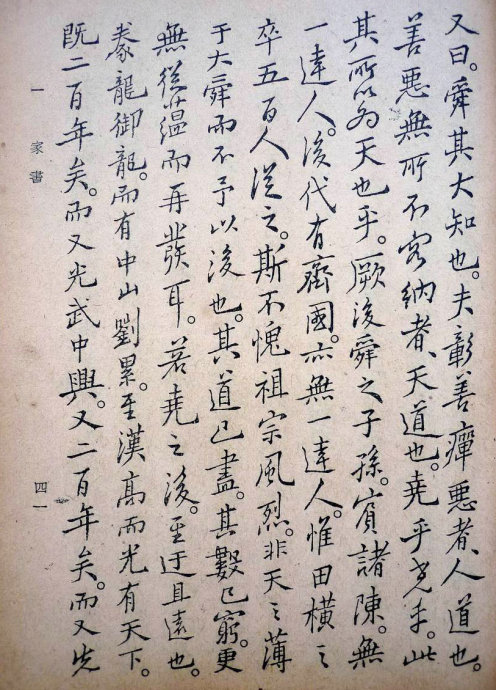 又曰。舜其大知也。夫彰善癉惡者、人道也。
善惡無所不容納者、天道也。堯乎堯乎。此
其所以為天也乎。厥後舜之子孫。賓諸陳。無
一達人。後代有齊國。亦無一達人。惟田橫之
卒五百人從之。斯不愧祖宗風烈。非天之薄
于大舜而不予以後也。其道已盡。其數已窮。更
無從蘊而再發耳。若堯之後。至迂且遠也。
豢龍御龍。而有中山劉累。至漢高而光有天下。
既二百年矣。而又光武中興。又二百年矣。而又先
一 家書 四一